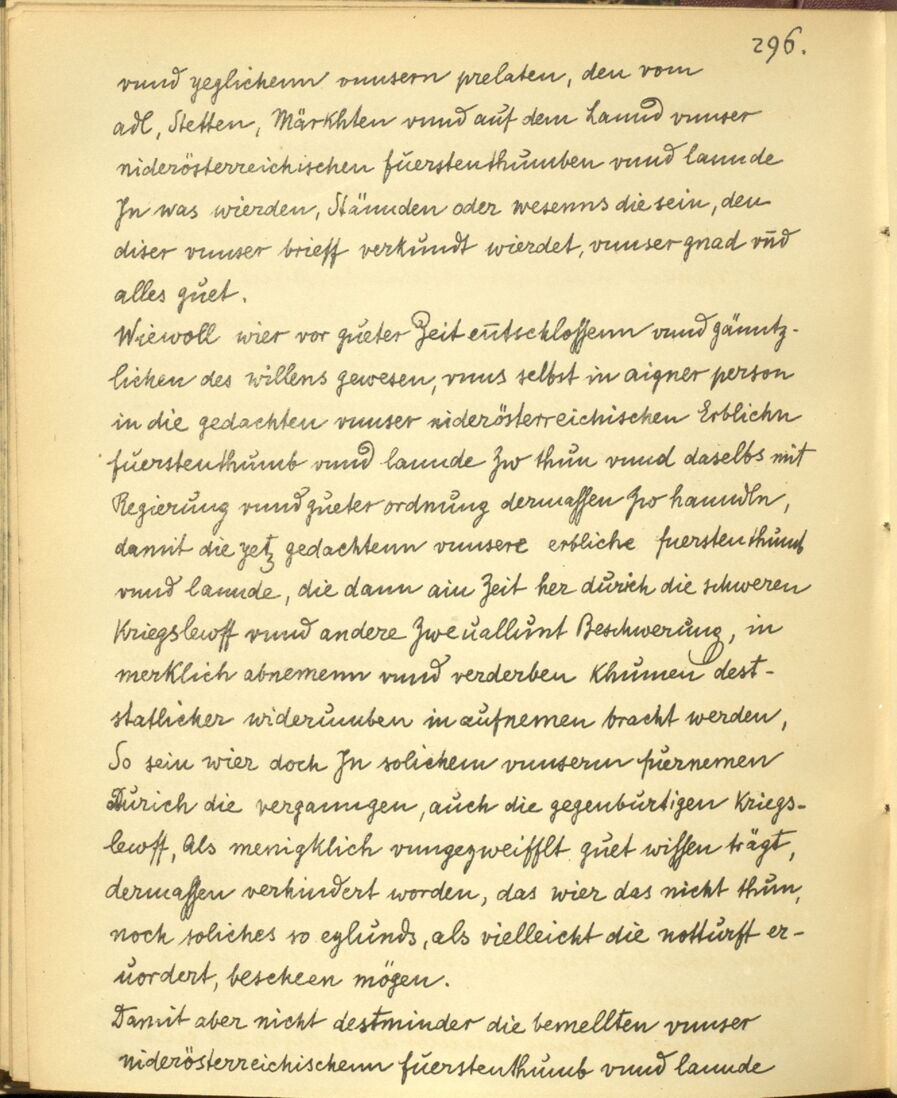 296.
vnnd yeglichenn vnnsern prelaten, den vom
adl, Stetten, Märkhten vnnd auf dem Lannd vnnser
niderösterreichischen fuerstenthumben vnnd lannde
In was wierden, Stännden oder wesenns die sein, den
diser vnnser brieff verkundt wierdet, vnnser gnad vn̄d
alles guet.
Wiewoll wier vor gueter Zeit entschlossenn vnnd gänntz-
lichen des willens gewesen, vnns selbst in aigner person
in die gedachten vnnser niderösterreichischen Erblichn
fuerstenthumb vnnd lannde zw thun vnnd daselbs mit
Regierung vnnd gueter ordnung dermassen zw hanndln,
damit die yetz gedachtenn vnnsere erbliche fuerstenthumb
vnnd lannde, die dann ain Zeit her durich die schweren
Kriegslewff vnnd andere Zweuallunt Beschwerung, in
merklich abnemenn vnnd verderben khumen dest-
statlicher widerumben in aufnemen bracht werden,
So sein wier doch In solichem vnnserm fuernemen
Durich die verganngen, auch die gegenburtigen Kriegs-
lewff, Als menigklich vnngezweifflt guet wissen trägt,
dermassen verhindert worden, das wier das nicht thun,
noch soliches so eylunds, als vielleicht die notturft er-
uordert, bescheen mögen.
Damit aber nicht destminder die bemellten vnnser
niderösterreichischenn fuerstenthumb vnnd lannde